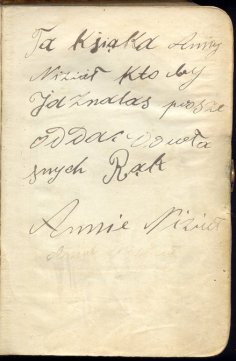 Ta Książka Anny
Nizioł Kto by
Ją Znalas prosze
oddac do wła
snych Rąk
Annie Nizioł